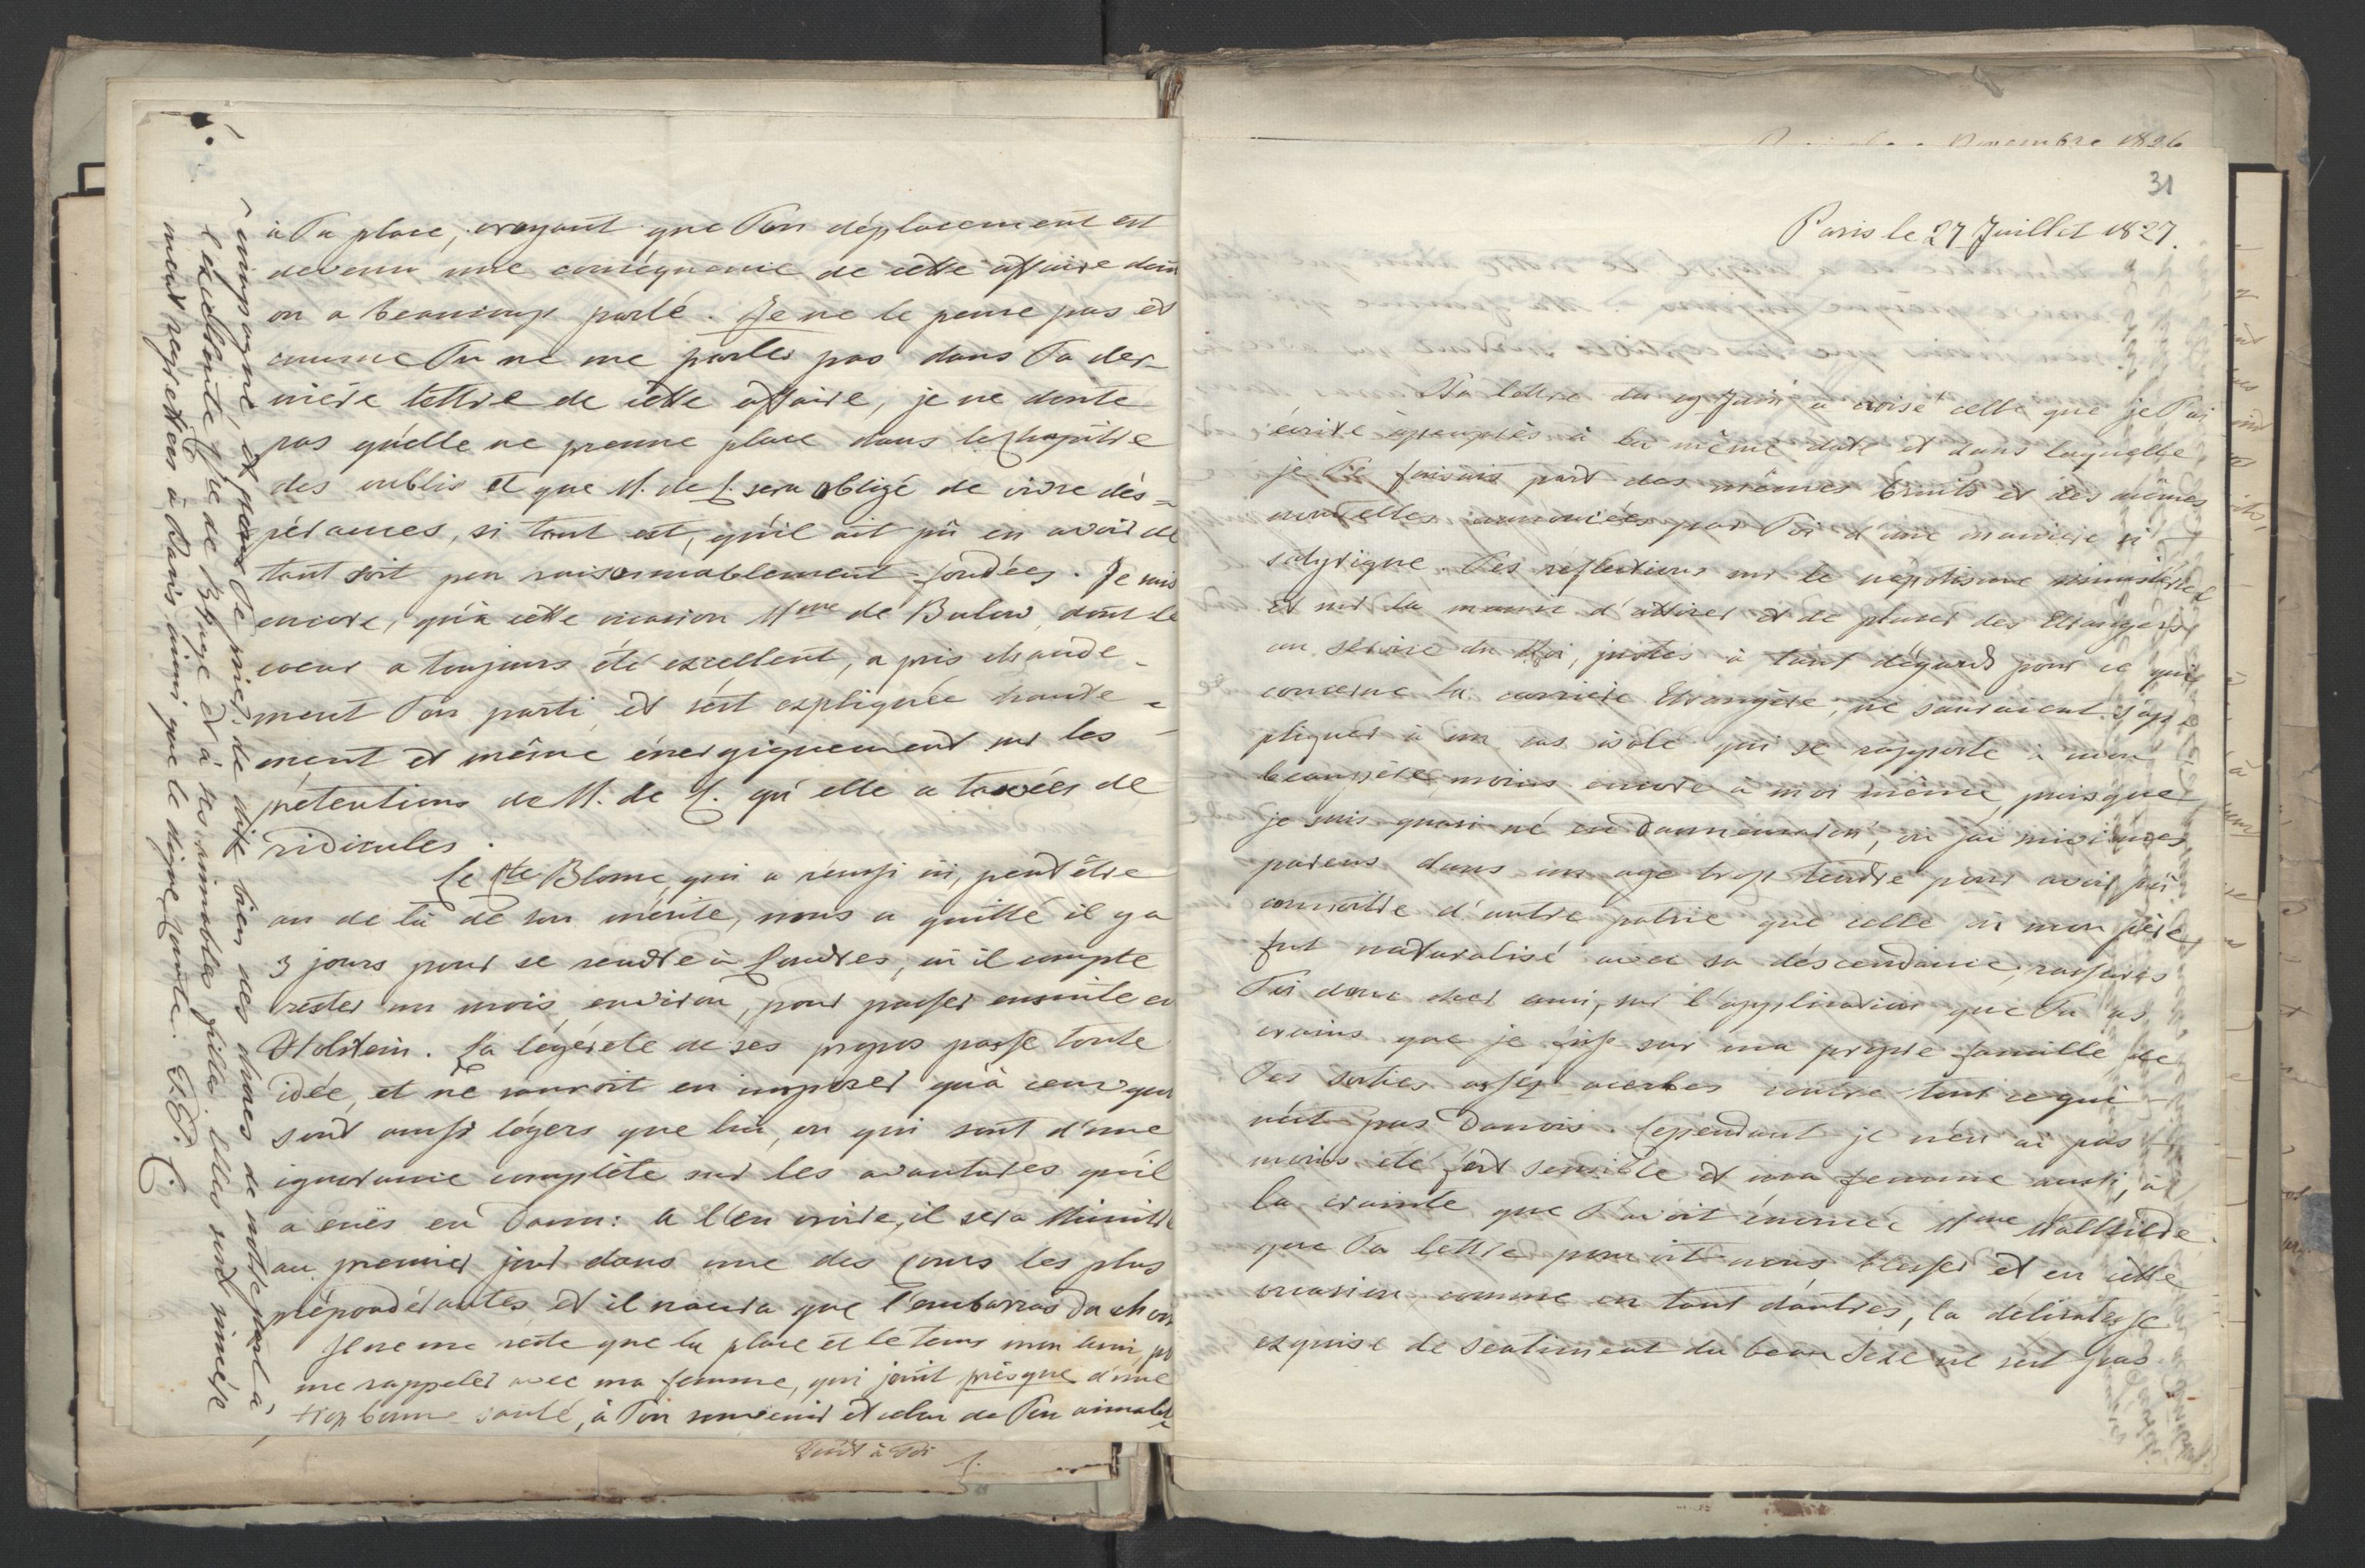 à Ta place, croyant que Ton déplacement est
devenu une conséquence de cette affaire dont
on a beaucoup parlé. Je ne le pense pas et
comme Tu ne me parles pas dans Ta der-
nière lettre de cette affaire, je ne doute
pas qu'elle ne prenne place dans le chapitre
des oublis et que M. de L. sera obligé de vivre d'és-
pérances, si tant est, qu'il ait pû en avoir de
tant soit peu raisonnablement fondées. Je sais
encore, qu'à cette occasion Mme de Bulow, dont le
coeur a toujours été excellent, a pris chaude-
ment Ton parti et s'est expliquée haute-
ment et même énergiquement sur les
prétentions de M. de L. qu'elle a taxées de
ridicules.
Le Cte Blome, qui a réussi ici, peut être
au de là de son mérite, nous a quitté il y a
3 jours pour se rendre à Londres, où il compte
rester un mois environ, pour passer ensuite en
Holstein. La légéreté de ses propos passe toute
idée, et ne sauroit en imposer qu'à ceux qui
sont aussi légers que lui, ou qui sont d'une
ignorance complète sur les avantures qu'il
a eues en Dann: à l'en croire, il sera Ministre
au premier jour dans une des Cours les plus
prépondérantes et il n'aura que l'embarras du choix
Il ne me reste que la place et le tems mon ami, pr
me rappeler avec ma femme, qui jouit présque d'une
trop bonne santé, à Ton souvenir et celui de Ton aimable
compagne, et pour Te prier de dire bien des choses de notre part à
l'excellente Gfne de Brage et à ses aimables filles. Elles sont sincére-
ment regrettées à Paris ainsi que le digne Comte. T. T. L.
Tout à Toi L.
Novembre 1826
31
Paris le 27 Juillet 1827.
Ta lettre du 29 Juin a croisé celle que je T'ai
écrite àpeuprès à la même date et dans laquelle
je Te faisais part des mêmes bruits et des mêmes
nouvelles annoncées par Toi d'une manière si
satyrique. Tes réflections sur le népotisme ministériel
et sur la manie d'attirer et de placer des Etrangers
au service du Roi, justes à tant d'égards pour ce qui
concerne la carrière Etrangère, ne sauroient s'ap-
pliquer à un cas isolé qui se rapporte à mon
beaupère moins encore à moi même, puisque
je suis quasi né en Dannemarck, où j'ai suivi mes
parens dans un age trop tendre pour avoir pû
connoitre d'autre patrie que celle où mon père
fut naturalisé avec sa déscendance, rassures
Toi donc cher ami, sur l'application que Tu as
crains que je fisse sur ma propre famille, de
Tes sorties assez acerbes contre tout ce qui
n'est pas Danois. Cependant je n'en ai pas
moins été fort sensible et ma femme aussi, à
la crainte que T'avoit énoncée Mme Mathilde
que Ta lettre pourroit nous blesser et en cette
occasion, comme en tant d'autres, la délicatesse
exquise de sentiment du beau sexe ne s'est pas